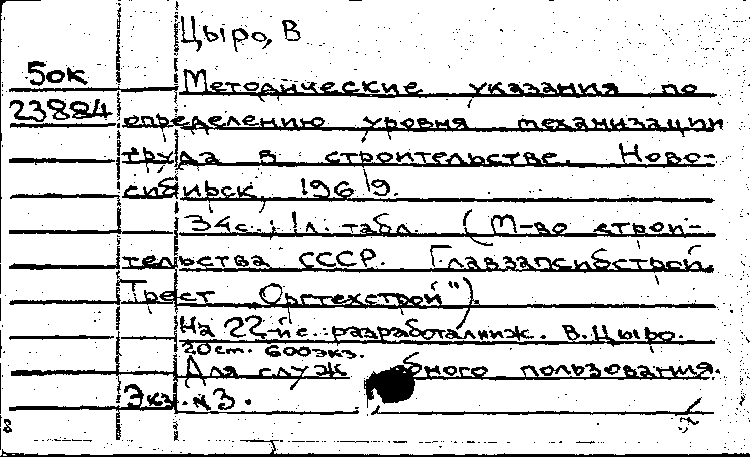 Цыро, В
5ок Методические указания по
23884 определению уровня механизации
труда в строительстве. Ново-
сибирск, 1969.
34с.; 1л. табл. (М-во строи-
тельства СССР. Главзапсибстрой.
Трест „Оргтехстрой").
На 22-й с.: разработал инж. В. Цыро.
20см. 600экз.
Для служебного пользования.
Экз. №3.